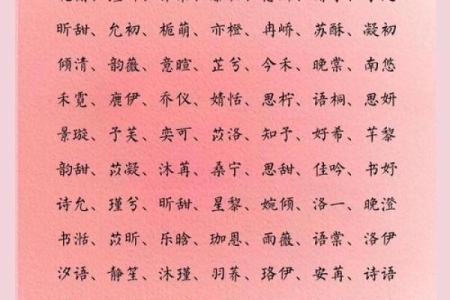 昕甜、允初、栀萌、亦橙、冉峤、苏酥、凝初
倾清、韵薇、意暄、芷兮、今禾、晚棠、南悠
禾霓、鹿伊、乔仪、婧恬、思柠、语桐、思妍
景璇、予芙、奕可、苡洛、知予、好希、芊黎
韵甜、苡凝、沐苒、桑宁、思甜、佳吟、书妤
诗允、瑾兮、昕甜、星黎、婉倾、洛一、晚澄
书湉、苡昕、乐晗、珈恩、雨薇、语棠、洛伊
汐语、静笙、沐瑾、羽荞、珞伊、安苒、诗语